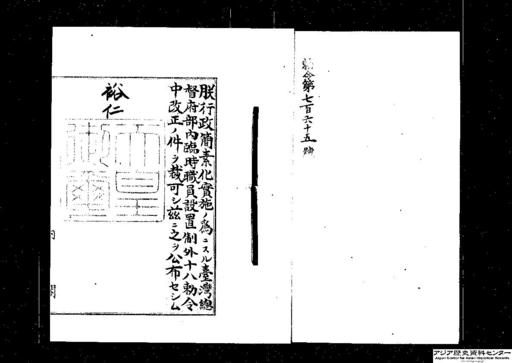 勅令第七百六十五號
朕行政簡素化實施ノ爲ニスル臺灣總
督府部內臨時職員設置制外十八勅令
中改正ノ件ヲ裁可シ茲ニ之ヲ公布セシム
裕仁
天皇
御璽
內閣
アジア歴史資料センター
Japan Center for Asian Historical Records